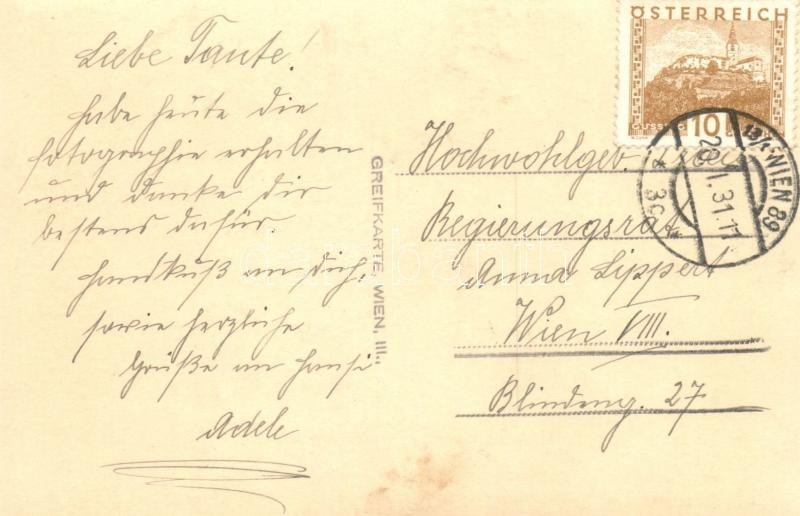 Liebe Tante!
habe heute die
fotographie erhalten
und danke dir
bestens dafür.
Handkuß an dich,
sowie herzliche
Grüße an Hansi
Adele
GREIFKARTE, WIEN, III.,
ÖSTERREICH
10
WIEN 89
31.11
Hochwohlgeb.
Regierungsrat
Anna Lippert
Wien VIII.
Blindeng. 27